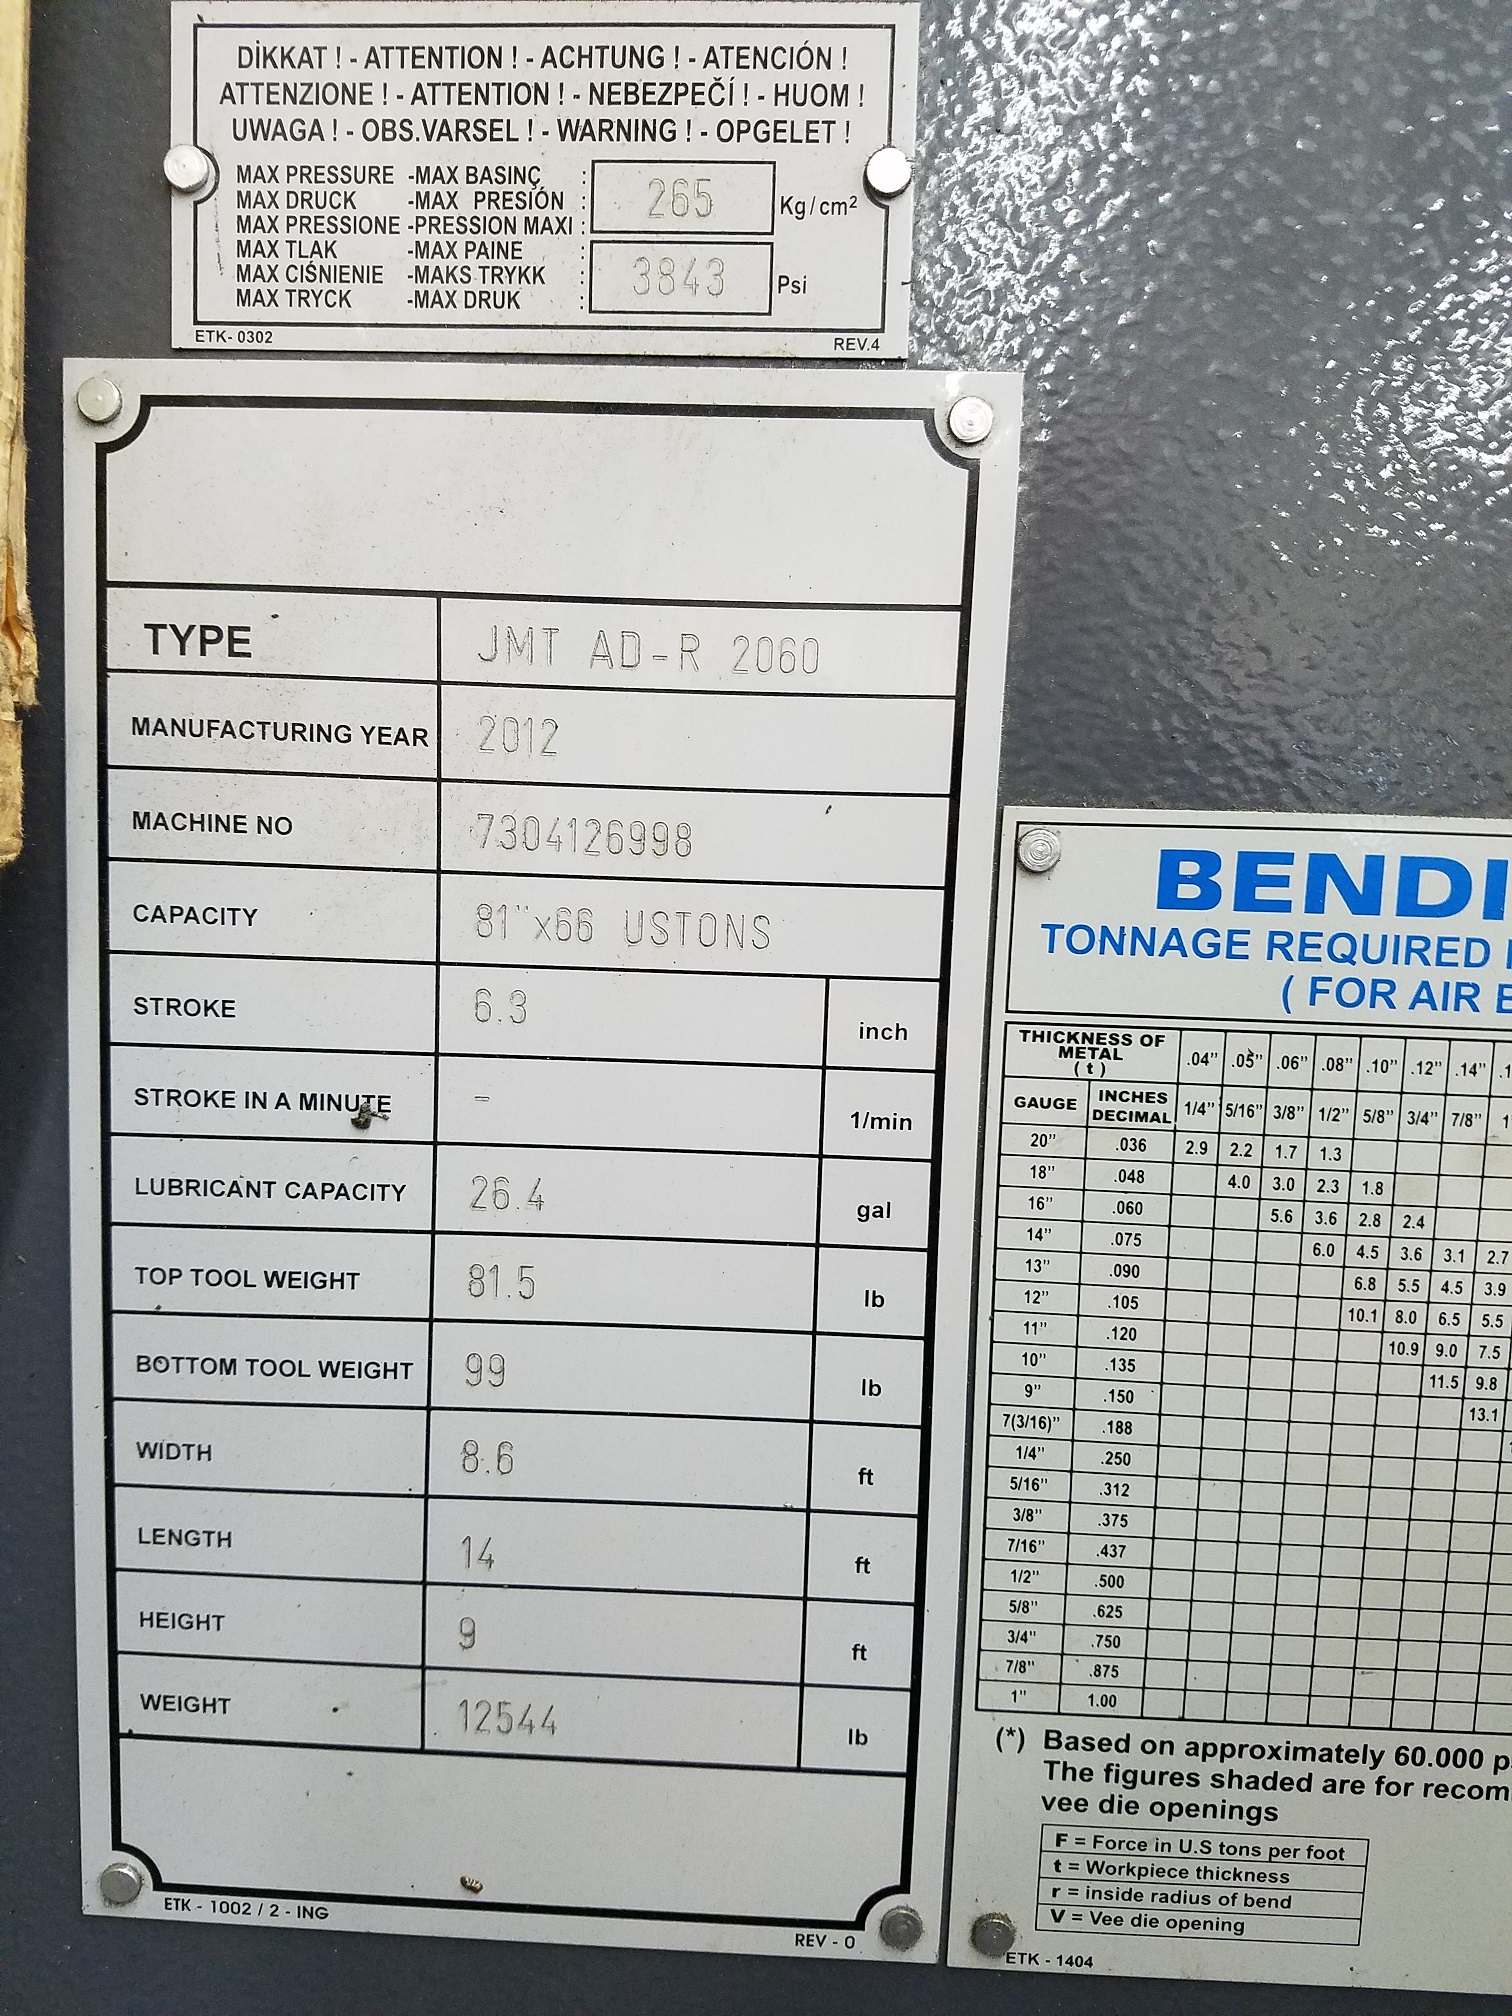 DİKKAT ! - ATTENTION ! - ACHTUNG ! - ATENCIÓN !
ATTENZIONE ! - ATTENTION ! - NEBEZPEČÍ ! - HUOM !
UWAGA ! - OBS.VARSEL ! - WARNING ! - OPGELET !
MAX PRESSURE -MAX BASINÇ :
MAX DRUCK -MAX PRESIÓN :
MAX PRESSIONE -PRESSION MAXI :
MAX TLAK -MAX PAINE :
MAX CIŚNIENIE -MAKS TRYKK :
MAX TRYCK -MAX DRUK :
265 Kg/cm²
3843 Psi
ETK- 0302 REV.4
TYPE JMT AD-R 2060
MANUFACTURING YEAR 2012
MACHINE NO 7304126998
CAPACITY 81"x66 USTONS
STROKE 6.3 inch
STROKE IN A MINUTE - 1/min
LUBRICANT CAPACITY 26.4 gal
TOP TOOL WEIGHT 81.5 lb
BOTTOM TOOL WEIGHT 99 lb
WIDTH 8.6 ft
LENGTH 14 ft
HEIGHT 9 ft
WEIGHT 12544 lb
ETK - 1002 / 2 - ING REV - 0
BENDI
TONNAGE REQUIRED
( FOR AIR
THICKNESS OF METAL ( t ) .04" .05" .06" .08" .10" .12" .14"
GAUGE INCHES DECIMAL 1/4" 5/16" 3/8" 1/2" 5/8" 3/4" 7/8"
20" .036 2.9 2.2 1.7 1.3
18" .048 4.0 3.0 2.3 1.8
16" .060 5.6 3.6 2.8 2.4
14" .075 6.0 4.5 3.6 3.1 2.7
13" .090 6.8 5.5 4.5 3.9
12" .105 10.1 8.0 6.5 5.5
11" .120 10.9 9.0 7.5
10" .135 11.5 9.8
9" .150 13.1
7(3/16)" .188
1/4" .250
5/16" .312
3/8" .375
7/16" .437
1/2" .500
5/8" .625
3/4" .750
7/8" .875
1" 1.00
(*) Based on approximately 60.000
The figures shaded are for recom
vee die openings
F = Force in U.S tons per foot
t = Workpiece thickness
r = inside radius of bend
V = Vee die opening
ETK - 1404